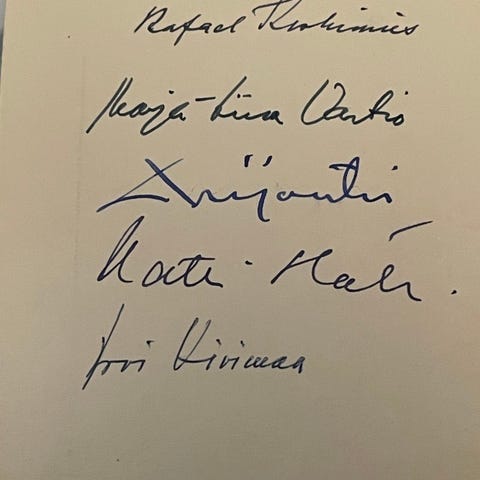 Rafael Koskimies
Marja-Liisa Vartio
Matti Hälli.
Arvi Kivimaa